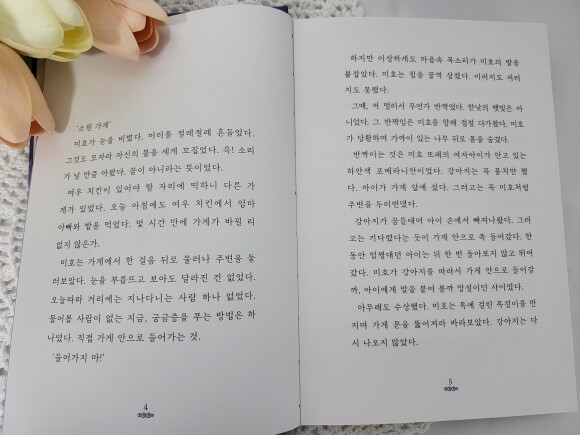 '소원 가게'
미호가 눈을 비볐다. 머리를 절레절레 흔들었다.
그것도 모자라 자신의 볼을 세게 꼬집었다. 윽! 소리
가 날 만큼 아팠다. 꿈이 아니라는 뜻이었다.
여우 치킨이 있어야 할 자리에 떡하니 다른 가
게가 있었다. 오늘 아침에도 여우 치킨에서 엄마
아빠와 밥을 먹었다. 몇 시간 만에 가게가 바뀔 리
없지 않은가.
미호는 가게에서 한 걸음 뒤로 물러나 주변을 둘
러보았다. 눈을 부릅뜨고 보아도 달라진 건 없었다.
오늘따라 거리에는 지나다니는 사람 하나 없었다.
물어볼 사람이 없는 지금, 궁금증을 푸는 방법은 하
나였다. 직접 가게 안으로 들어가는 것.
'들어가지 마!'
4
하지만 이상하게도 마음속 목소리가 미호의 발을
붙잡았다. 미호는 침을 꿀꺽 삼켰다. 이러지도 저러
지도 못했다.
그때, 저 멀리서 무언가 반짝였다. 한낮의 햇빛은 아
니었다. 그 반짝임은 미호를 향해 점점 다가왔다. 미호
가 당황하며 가까이 있는 나무 뒤로 몸을 숨겼다.
반짝이는 것은 미호 또래의 여자아이가 안고 있는
하얀색 포메라니안이었다. 강아지는 꼭 뭉치만 했
다. 아이가 가게 앞에 섰다. 그러고는 꼭 미호처럼
주변을 두리번댔다.
강아지가 꿈틀대며 아이 손에서 빠져나왔다. 그러
고는 기다렸다는 듯이 가게 안으로 쏙 들어갔다. 한
동안 얼쩡대던 아이는 뒤 한 번 돌아보지 않고 뛰어
갔다. 미호가 강아지를 따라서 가게 안으로 들어갈
까, 아이에게 말을 붙여 볼까 망설이던 사이였다.
아무래도 수상했다. 미호는 목에 걸린 목걸이를 만
지며 가게 문을 뚫어져라 바라보았다. 강아지는 다
시 나오지 않았다.
5